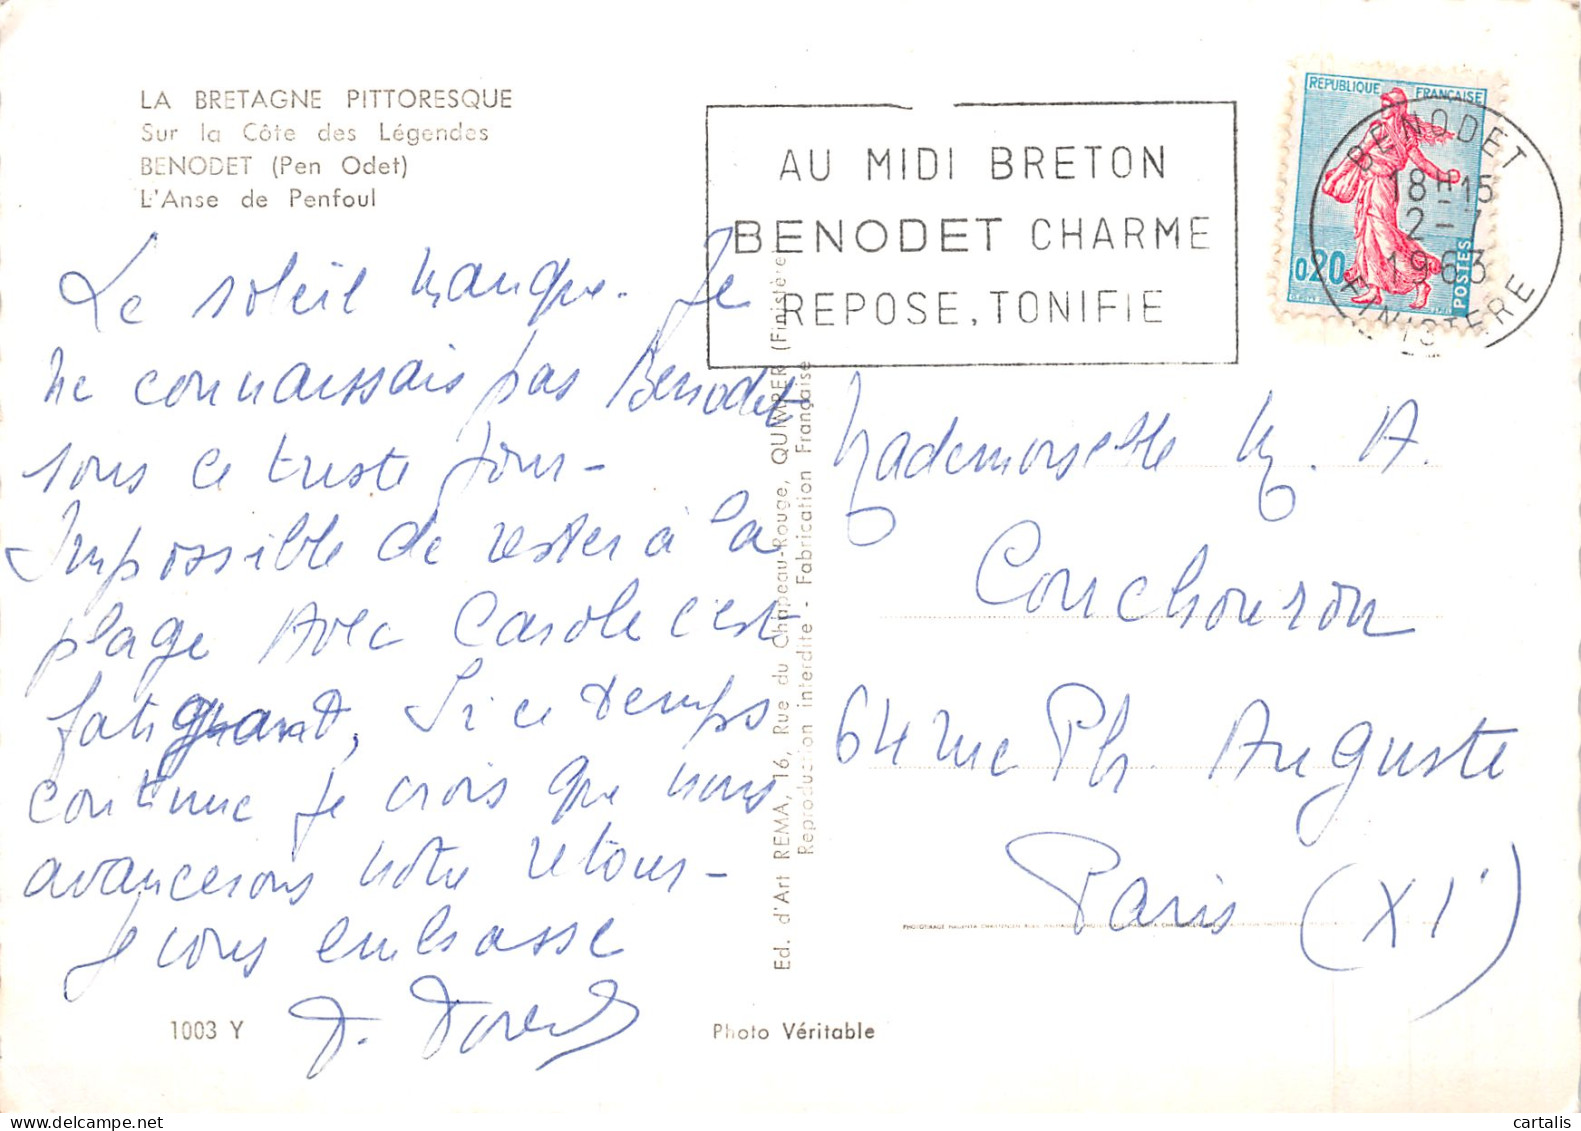 LA BRETAGNE PITTORESQUE
Sur la Côte des Légendes
BENODET (Pen Odet)
L'Anse de Penfoul
AU MIDI BRETON
BENODET CHARME
REPOSE, TONIFIE
REPUBLIQUE FRANÇAISE
0,20
POSTES
BENODET
18H15
2-7
1963
FINISTERE
Le soleil manque. Je
ne connaissais pas Benodet
sous ce triste jour-
Impossible de rester à la
plage Avec Carole c'est
fatiguant, Si ce temps
continue je crois que nous
avancerons notre retour-
Je vous embrasse
Mademoiselle M. A.
Couchouron
64 rue Ph. Auguste
Paris (XI)
Ed. d'Art REMA, 16, Rue du Chapeau-Rouge, QUIMPER (Finistère)
Reproduction interdite - Fabrication Française
1003 Y
Photo Véritable
cartalis